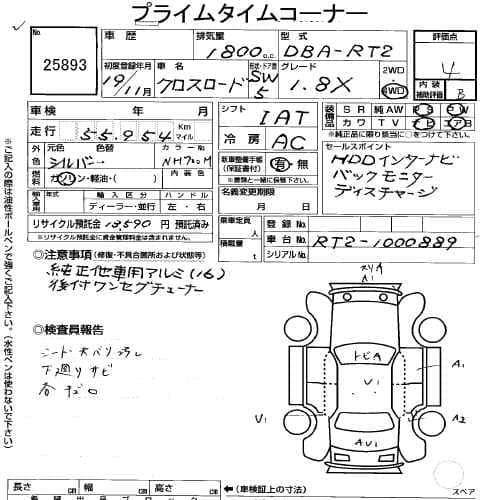 プライムタイムコーナー
No.
25893
車歴 排気量 1800c.c. 型式 DBA-RT2
評価点 4
初度登録年月 19/11月 車名 クロスロード 形状・ドア数 SW 5 グレード 1.8X 2WD 4WD
内装補助評価 B
車検 年 月
シフト IAT
装備品 SR 純AW PS PW
カワ TV エアB
※純正品に限り該当に○をつけて下さい。
走行 55,954 Km マイル
冷房 AC
セールスポイント
HDDインターナビ
バックモニター
ディスチャージ
外色 元色 色替 カラーNo
シルバー NH700M
新車整備手帳(保証書付) 有・無
※書類と一緒に提出して下さい。
燃料 ガソリン・軽油・( )
名義変更期限 月 日
輸入車用 年式 輸入区分 ハンドル
ディーラー・並行 左・右
リサイクル預託金 13,590円 預託済み
※リサイクル預託金に資金管理料金は含まれません。
乗車定員 人
積載量 t
登録No.
車台No. RT2-1000889
シリアルNo.
◎注意事項 (修復・不具合箇所および状態等)
純正他車用アルミ(16)
後付ワンセグチューナー
◎検査員報告
シート大バリ汚レ
下廻りサビ
スリA
トビA
V1
A1
V1
A2
AV1
スペア
長さ cm 幅 cm 高さ cm
←(車検証上の寸法)
※ご記入の際は油性ボールペンで強くご記入下さい。(水性ペンは使わないで下さい)